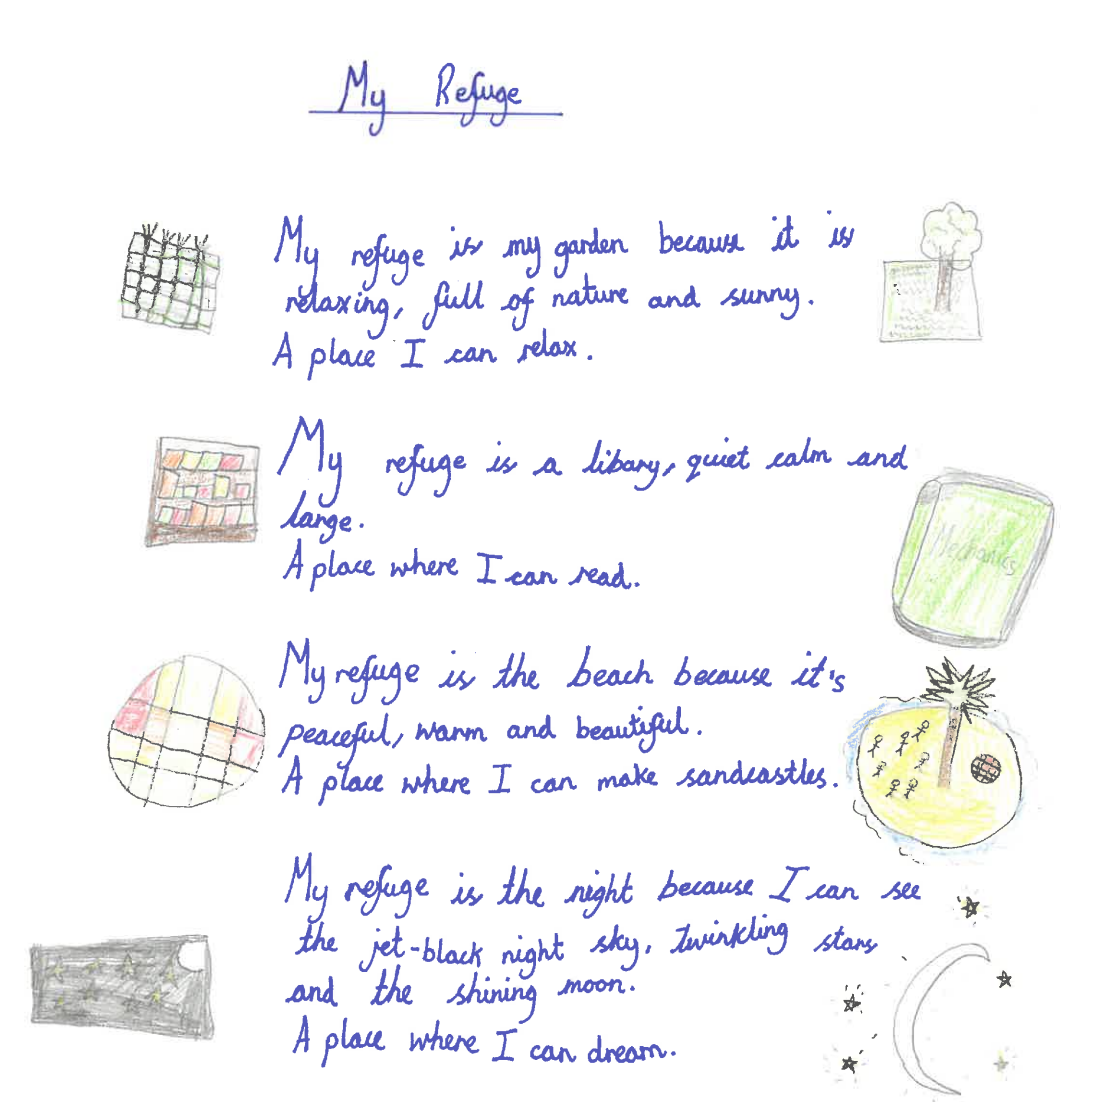 My Refuge
My refuge is my garden because it is
relaxing, full of nature and sunny.
A place I can relax.
My refuge is a libary, quiet calm and
large.
A place where I can read.
Mechanics
My refuge is the beach because it's
peaceful, warm and beautiful.
A place where I can make sandcastles.
My refuge is the night because I can see
the jet-black night sky, twinkling stars
and the shining moon.
A place where I can dream.